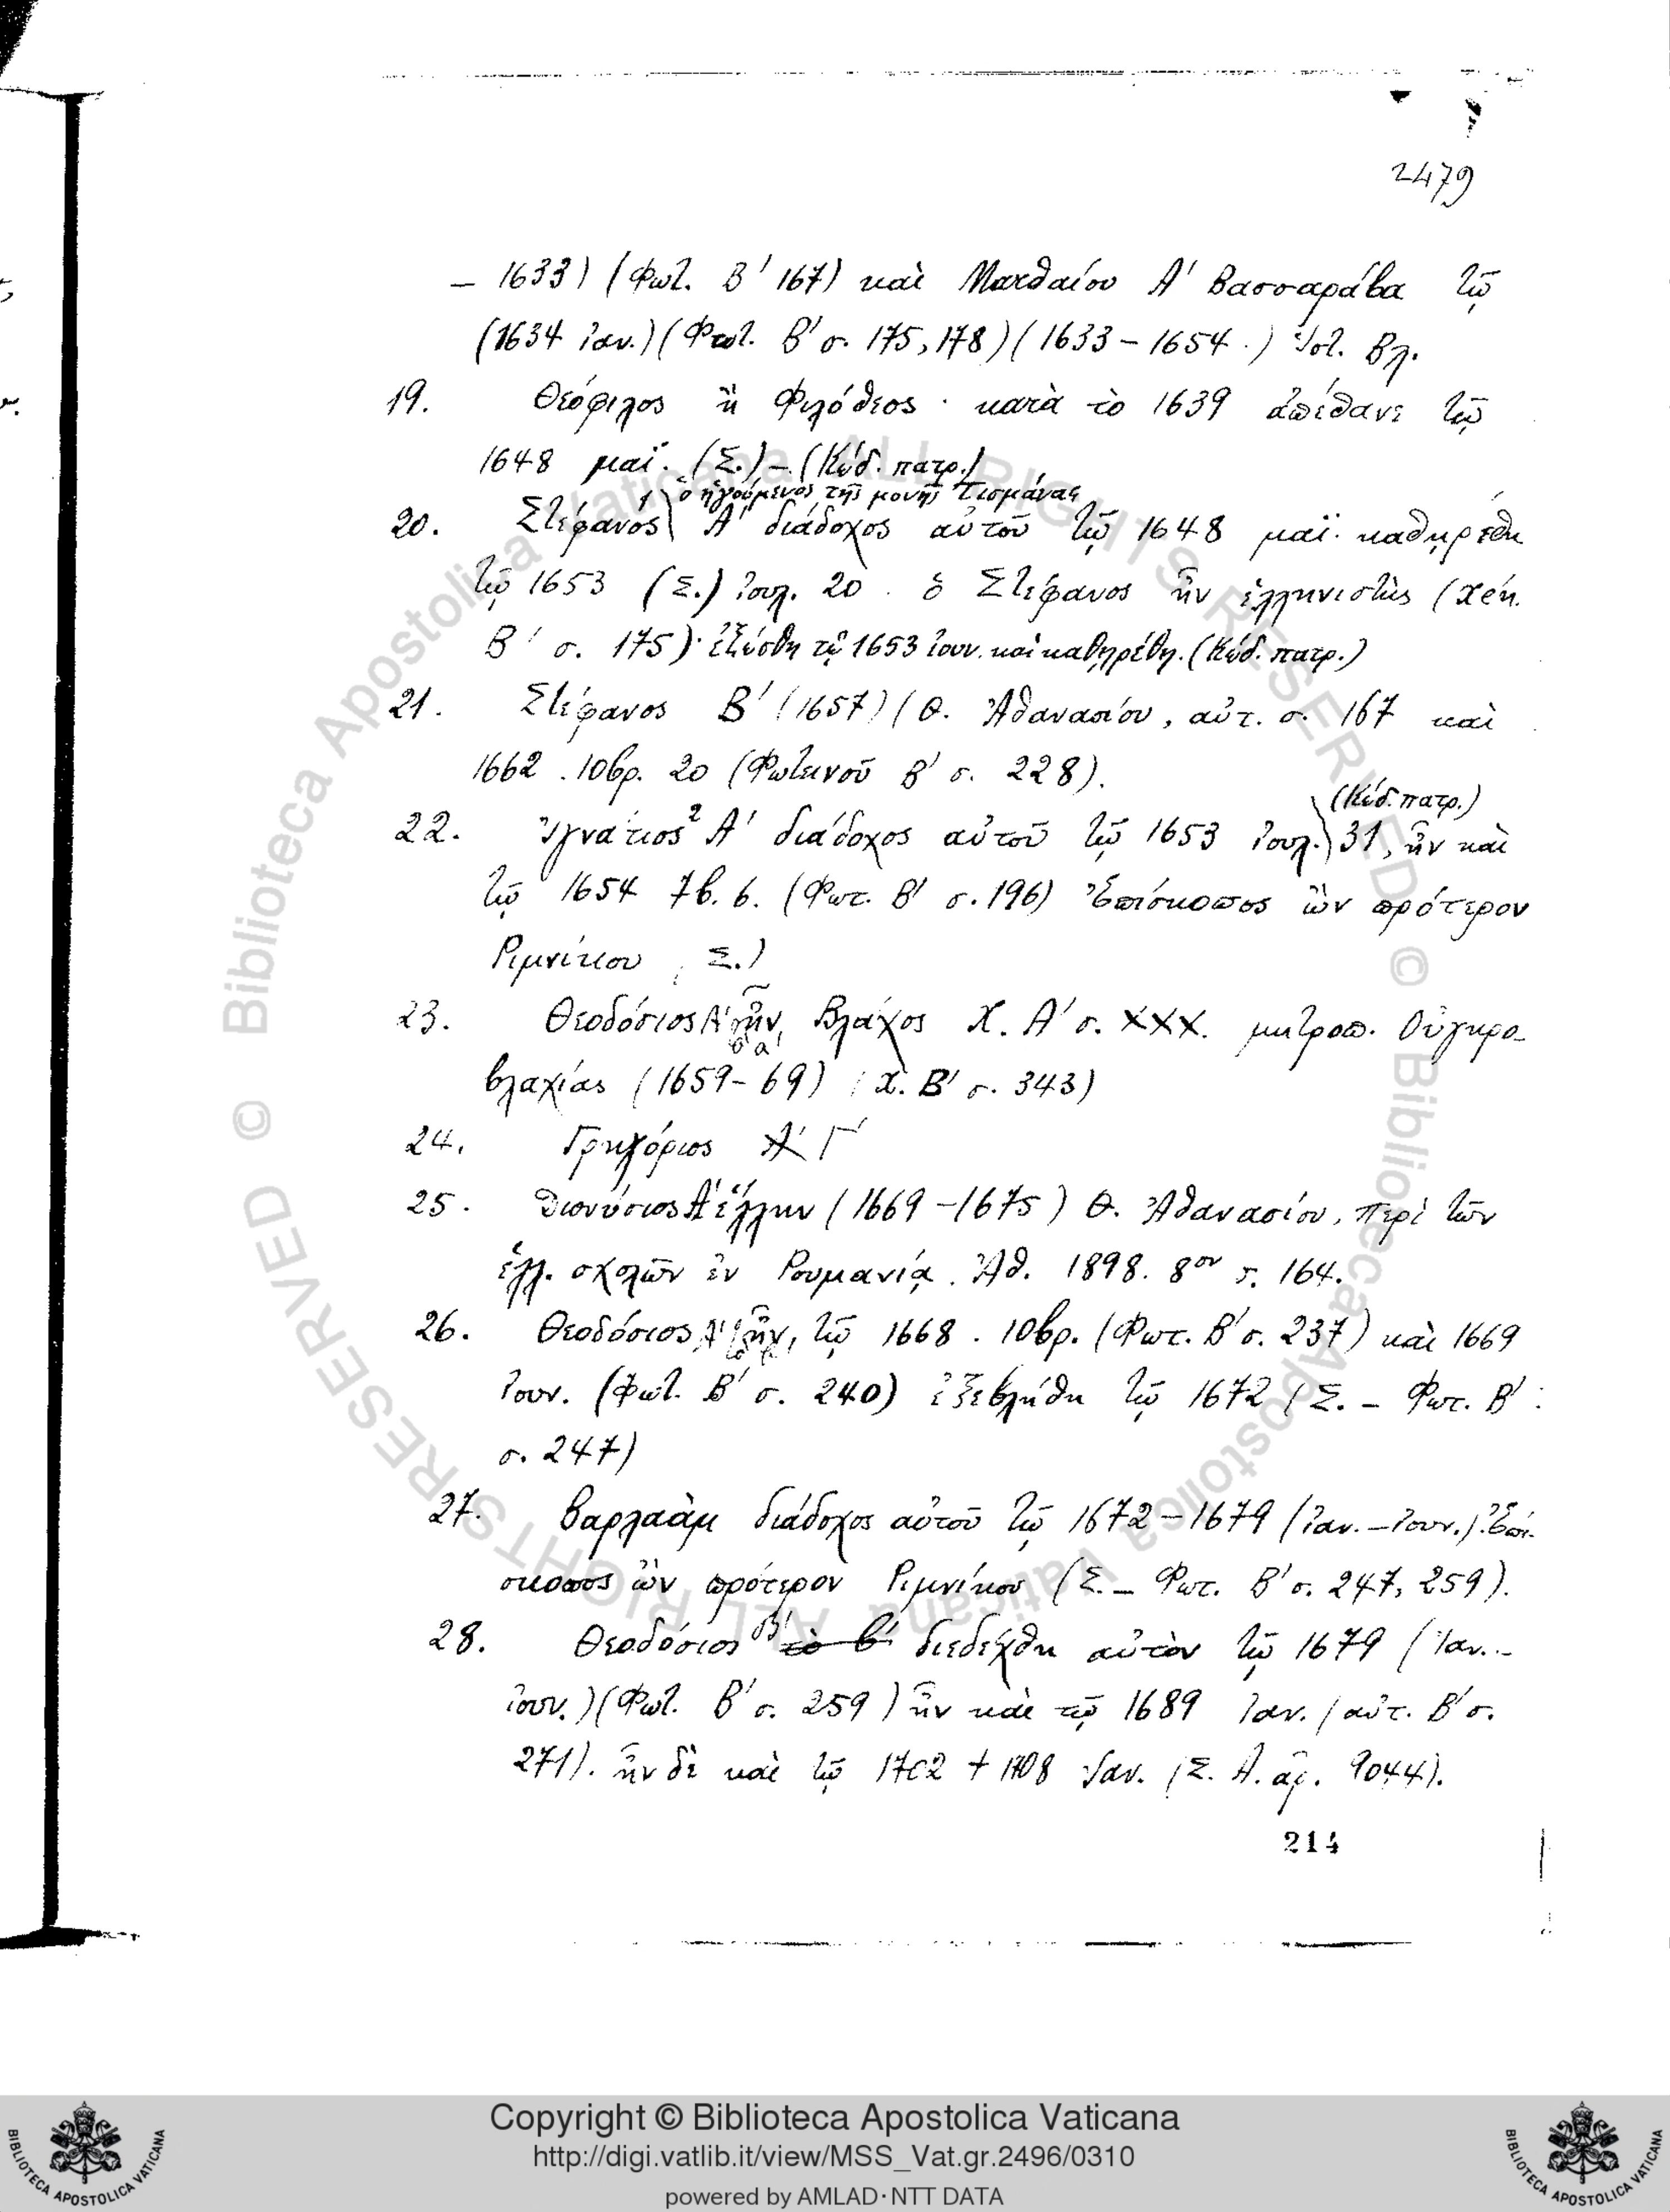 2479
– 1633) (Φωτ. Β' 167) καὶ Ματθαίου Α' Βασσαράβα τῷ
(1634 ἰαν.) (Φωτ. Β' σ. 175, 178) (1633 – 1654.) Ἱστ. Βλ.
19. Θεόφιλος ἢ Φιλόθεος · κατὰ τὸ 1639 ἀπέθανε τῷ
1648 μαΐ. (Σ.) – (Κώδ. πατρ.)
ὁ ἡγούμενος τῆς μονῆς Τισμάνας
20. Στέφανος 1 Α' διάδοχος αὐτοῦ τῷ 1648 μαΐ. καθῃρέθη
τῷ 1653 (Σ.) ἰουλ. 20. ὁ Στέφανος ἦν ἑλληνιστὴς (Χέη.
Β' σ. 175)· ἐξώσθη τῷ 1653 ἰουν. καὶ καθῃρέθη. (Κώδ. πατρ.)
21. Στέφανος Β' (1657) (Θ. Ἀθανασίου, αὐτ. σ. 167 καὶ
1662. 10βρ. 20 (Φωτεινοῦ Β' σ. 228).
(Κώδ. πατρ.)
22. Ἰγνάτιος 2 Α' διάδοχος αὐτοῦ τῷ 1653 ἰουλ. 31, ἦν καὶ
τῷ 1654 7β. 6. (Φωτ. Β' σ. 196) Ἐπίσκοπος ὢν πρότερον
Ριμνίκου Σ.)
23. Θεοδόσιος Α' ἦν, Βλάχος Χ. Α' σ. ΧΧΧ. μητροπ. Οὐγκρο-
βλαχίας (1659-69) (Χ. Β' σ. 343)
24. Γρηγόριος Α' Γ'
25. Διονύσιος Α' ἕλλην (1669 – 1675) Θ. Ἀθανασίου, περὶ τῶν
ἑλλ. σχολῶν ἐν Ρουμανίᾳ. Ἀθ. 1898. 8ον σ. 164.
26. Θεοδόσιος Α' ἦν, τῷ 1668. 10βρ. (Φωτ. Β' σ. 237) καὶ 1669
Ἰουν. (Φωτ. Β' σ. 240) ἐξεβλήθη τῷ 1672 (Σ. – Φωτ. Β'
σ. 247)
27. Βαρλαὰμ διάδοχος αὐτοῦ τῷ 1672 – 1679 (ἰαν. – ἰουν.). Ἐπί-
σκοπος ὢν πρότερον Ριμνίκου (Σ. – Φωτ. Β' σ. 247, 259).
28. Θεοδόσιος Β' τὸ β' διεδέχθη αὐτὸν τῷ 1679 (Ἰαν. –
ἰουν.) (Φωτ. Β' σ. 259) ἦν καὶ τῷ 1689 Ἰαν. (αὐτ. Β' σ.
271). ἦν δὲ καὶ τῷ 1702 † 1708 Ἰαν. (Σ. Α. ἀρ. 9044).
214
© Biblioteca Apostolica Vaticana ALL RIGHTS RESERVED © Biblioteca Apostolica Vaticana ALL RIGHTS RESERVED
Copyright © Biblioteca Apostolica Vaticana
http://digi.vatlib.it/view/MSS_Vat.gr.2496/0310
powered by AMLAD·NTT DATA
BIBLIOTECA APOSTOLICA VATICANA
BIBLIOTECA APOSTOLICA VATICANA